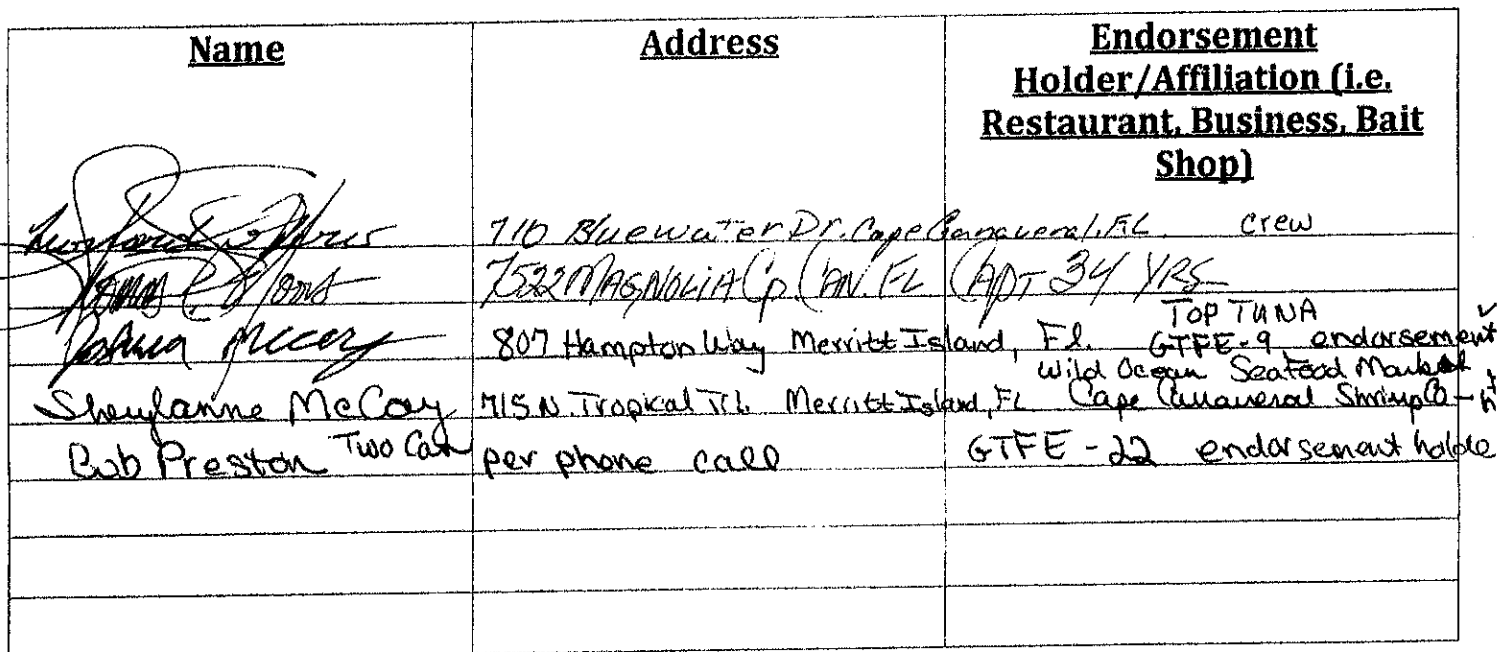 Name Address Endorsement
Holder/Affiliation (i.e.
Restaurant, Business, Bait
Shop)
710 Bluewater Dr. Cape Canaveral, FL. crew
7522 MAGNOLIA Cp. CAN. FL CAPT 34 YRS
TOP TUNA
Joshua McCoy 807 Hampton Way Merritt Island, Fl. GTFE-9 endorsement
Wild Ocean Seafood Market
Sherylanne McCoy 715 N. Tropical Trl. Merritt Island, FL Cape Canaveral Shrimp Co
Bob Preston Two Can per phone call GTFE - 22 endorsement holde